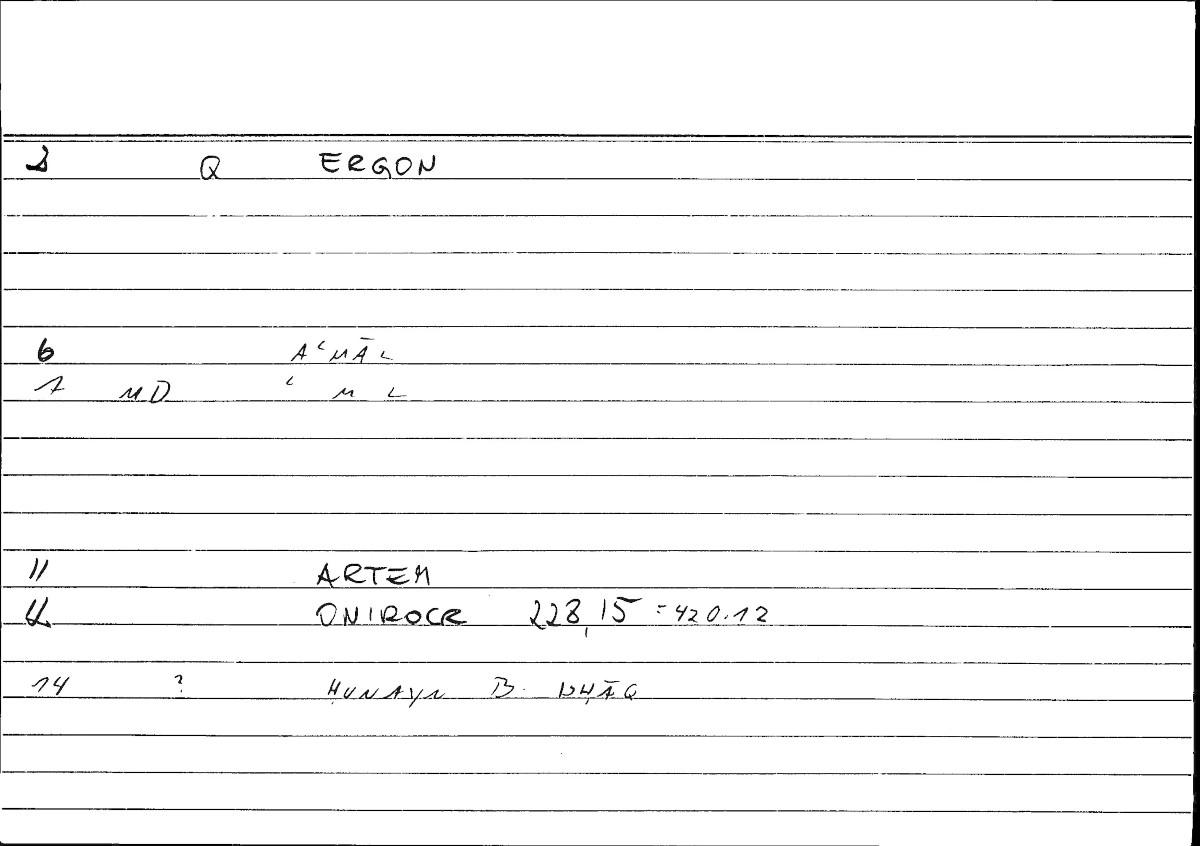 2 Q ERGON
6 AʿMĀL
7 MD ʿ M L
11 ARTEM
12 ONIROCR 228,15 = 420.12
14 ? ḤUNAYN B. ISḤĀQ